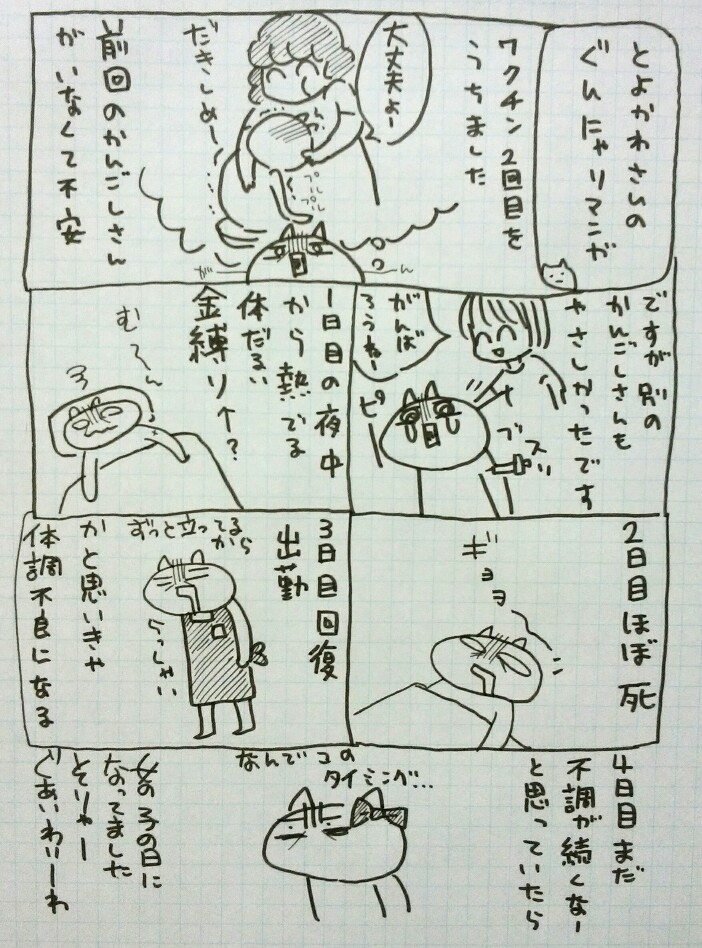 とよかわさんの
ぐんにゃりマンガ
ワクチン2回目を
うちました
大丈夫よー
だきしめー
プルプル
前回のかんごしさん
がいなくて不安
がーん
ですが別の
かんごしさんも
やさしかったです
がんば
ろうねー
ブスリ
ピー
1日目の夜中
から熱でる
体だるい
金縛り↑?
む〜ん
2日目ほぼ死
ギョヨヨ
3日目回復
出勤
ずっと立ってる
から
らっしゃい
かと思いきや
体調不良になる
4日目まだ
不調が続くなー
と思っていたら
なんでコの
タイミング...
女の子の日に
なってました
そりゃー
ぐあいわりーわ